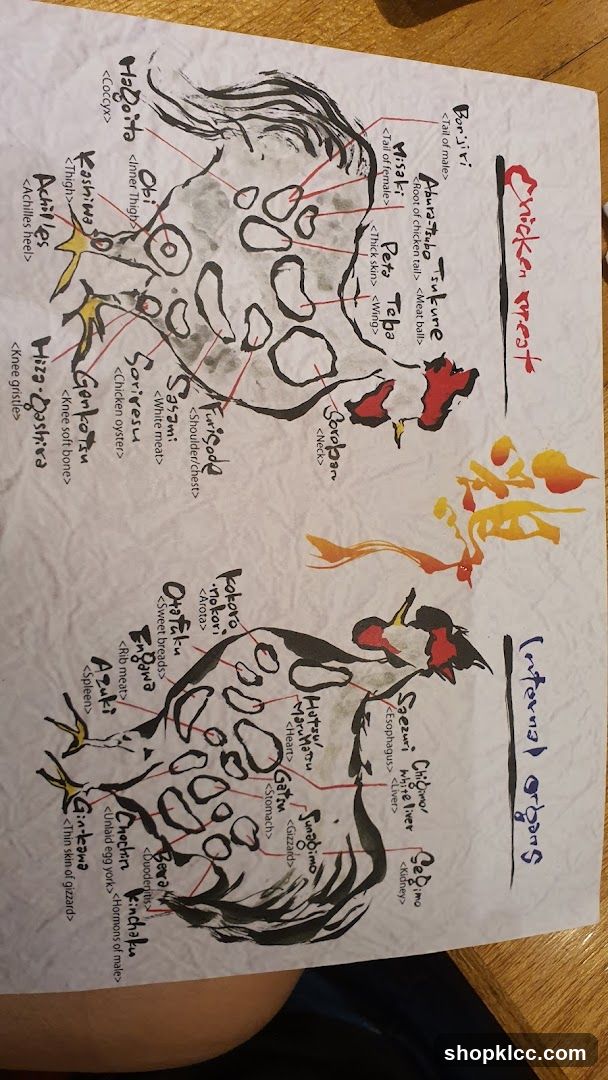 Chicken meat
Bonjiri
<Tail of male>
Misaki
<Tail of female>
Abura-tsubo
<Root of chicken tail>
Tsukune
<Meat ball>
Peta
<Thick skin>
Teba
<Wing>
Soroban
<Neck>
Hagoita
<Coccyx>
Obi
<Inner Thigh>
Kashiwa
<Thigh>
Achilles
<Achilles heel>
Furisode
<Shoulder/chest>
Sasami
<White meat>
Soriresu
<Chicken oyster>
Genkotsu
<Knee soft bone>
Hiza-gashira
<Knee gristle>
Internal organs
Saezuri
<Esophagus>
Chigimo/
white liver
<Liver>
Segimo
<Kidney>
Hatsu/
Maruhatsu
<Heart>
Gatsu
<Stomach>
Sunagimo
<Gizzard>
Kokoro
nokori
<Arota>
Otafuku
<Sweet breads>
Engawa
<Rib meat>
Azuki
<Spleen>
Kinchaku
<Hormons of male>
<Duodenitis>
Chochin
<Unlaid egg york>
Ginkawa
<Thin skin of gizzard>
shopklcc.com